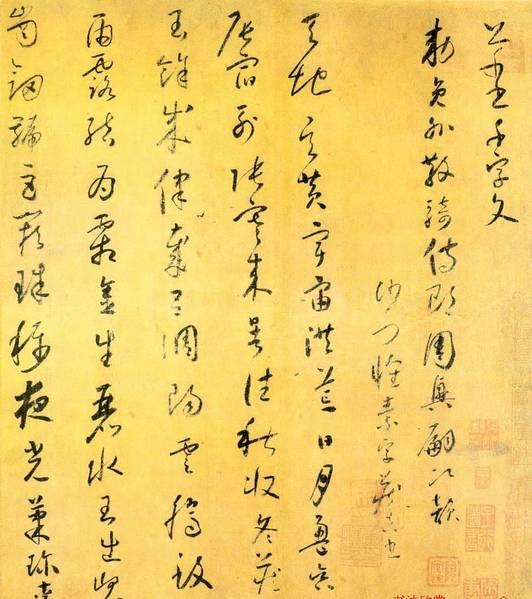 草書千字文
勅員外散騎侍郎周興嗣次韻
沙門懷素字藏真也
天地玄黃宇宙洪荒日月盈昃
辰宿列張寒來暑往秋收冬藏
閏餘成律歲呂調陽雲騰致
雨露結為霜金生麗水玉出崑
崗劍號巨闕珠稱夜光菓珍李
书法欣赏